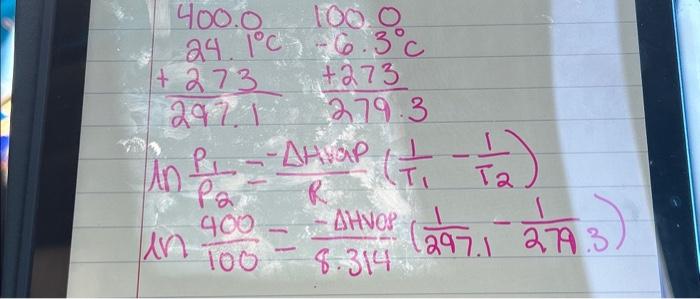 400.0 100.0
24.1°C -6.3°C
+273 +273
297.1 279.3
ln P1/P2 = -ΔHvap/R (1/T1 - 1/T2)
ln 400/100 = -ΔHVOP/8.314 (1/297.1 - 1/279.3)